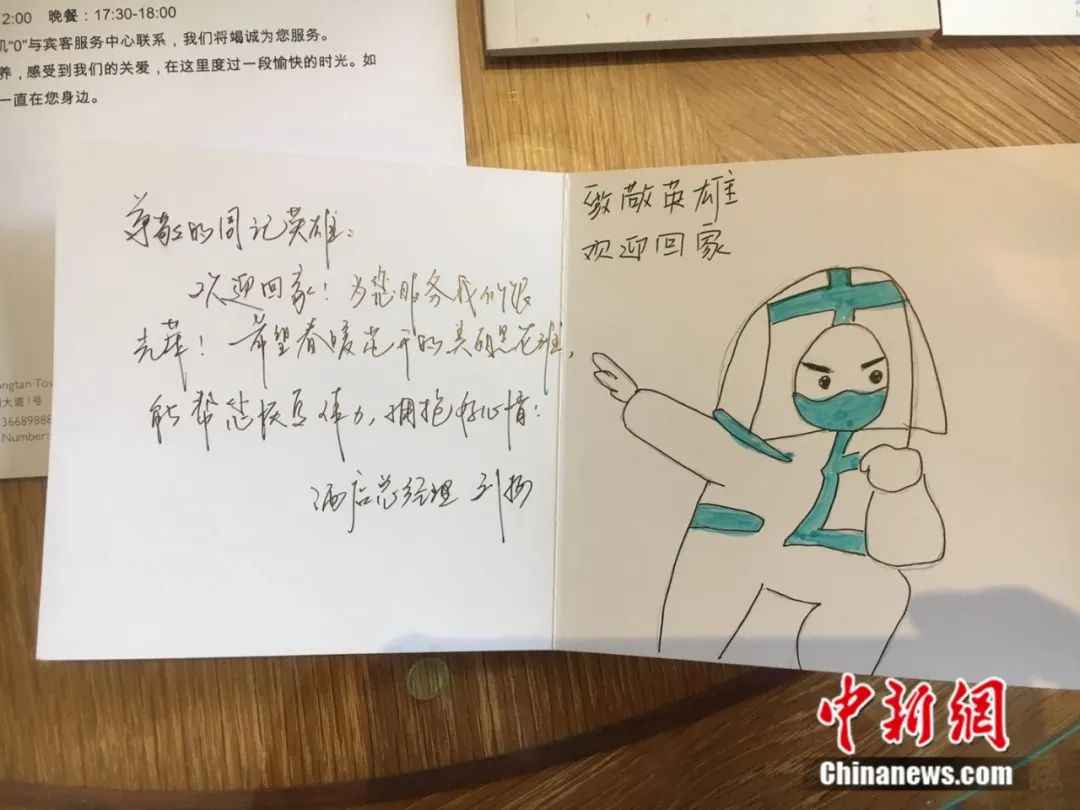 2:00 晚餐：17:30-18:00
机“0”与宾客服务中心联系，我们将竭诚为您服务。
养，感受到我们的关爱，在这里度过一段愉快的时光。如
一直在您身边。
ongtan Tow
大道1号
36689888
Number:
尊敬的周记英雄：
欢迎回家！为您服务我们很
光荣！希望春暖花开的美丽
能帮您恢复体力，拥抱好心情！
酒店总经理 刘扬
致敬英雄
欢迎回家
中新网
Chinanews.com